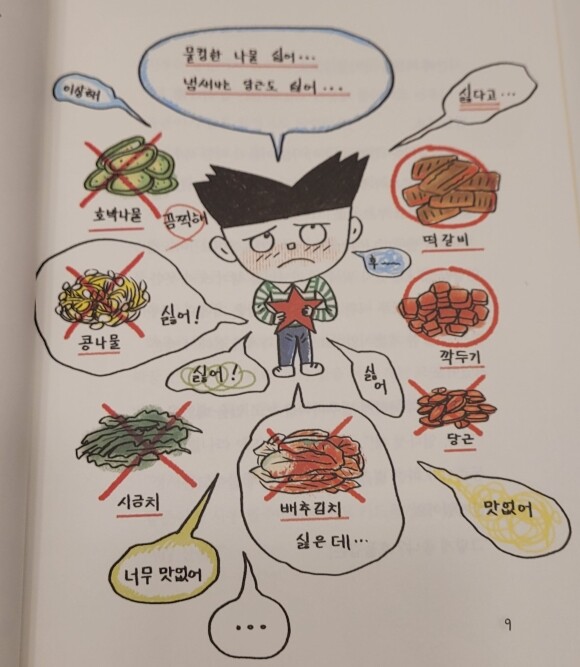 물컹한 나물 싫어...
냄새나는 당근도 싫어...
이상해
싫다고...
호박나물
끔찍해
떡갈비
후~
콩나물
싫어!
깍두기
싫어!
싫어
당근
시금치
배추김치
싫은데...
맛없어
너무 맛없어
...
9